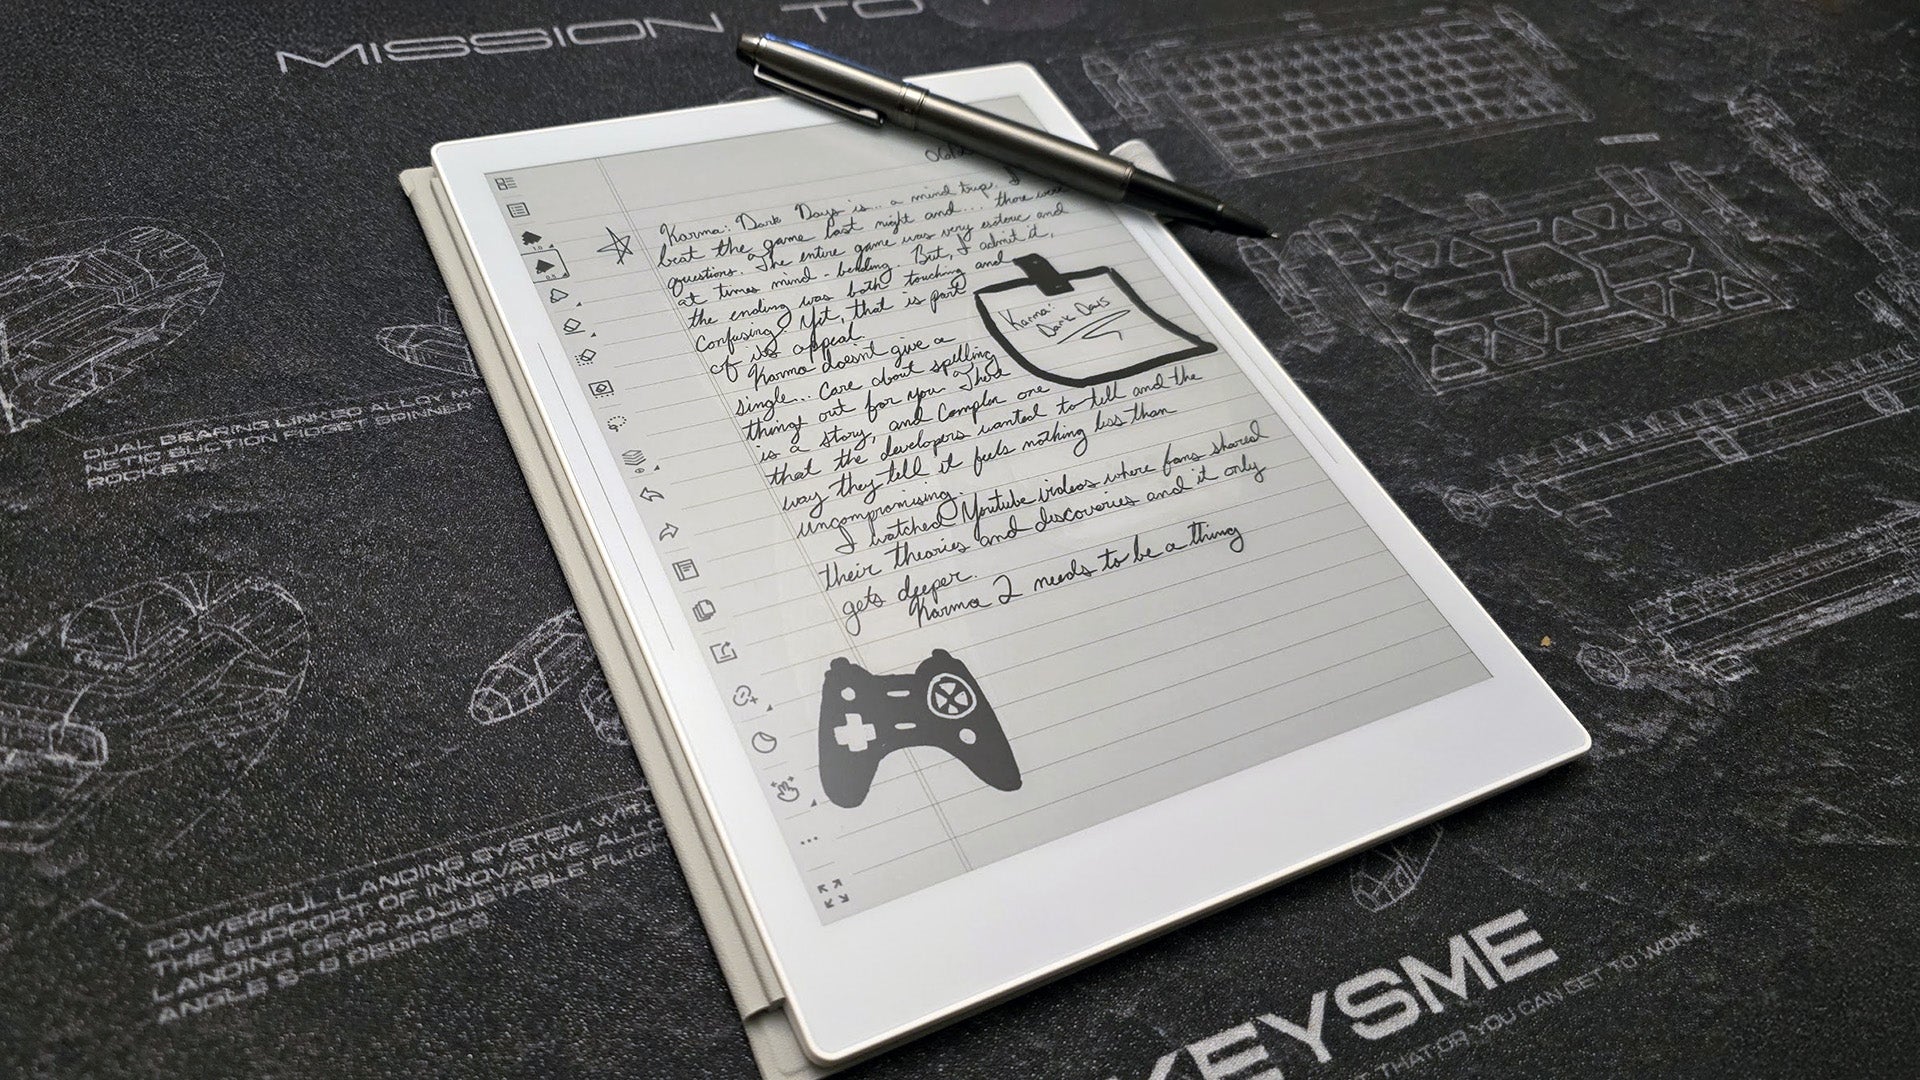 MISSION TO
06/2
Karma: Dark Days is... a mind trip. I
beat the game last night and... there were
questions. The entire game was very esoteric and
at times mind-bending. But, I admit it,
the ending was both touching and
confusing. Yet, that is part
of its appeal.
Karma: Dark Days
Karma doesn't give a
single... care about spelling
things out for you. There
is a story, and complex one
that the developers wanted to tell and the
way they tell it feels nothing less than
uncompromising.
I watched Youtube videos where fans shared
their theories and discoveries and it only
gets deeper.
Karma 2 needs to be a thing
DUAL BEARING LINKED ALLOY MA
NETIC SUCTION FIDGET SPINNER
ROCKET.
POWERFUL LANDING SYSTEM WITH
THE SUPPORT OF INNOVATIVE ALLO
LANDING GEAR ADJUSTABLE FLIGH
ANGLE 5-8 DEGREES
KEYSME
THAT OR YOU CAN GET TO WORK